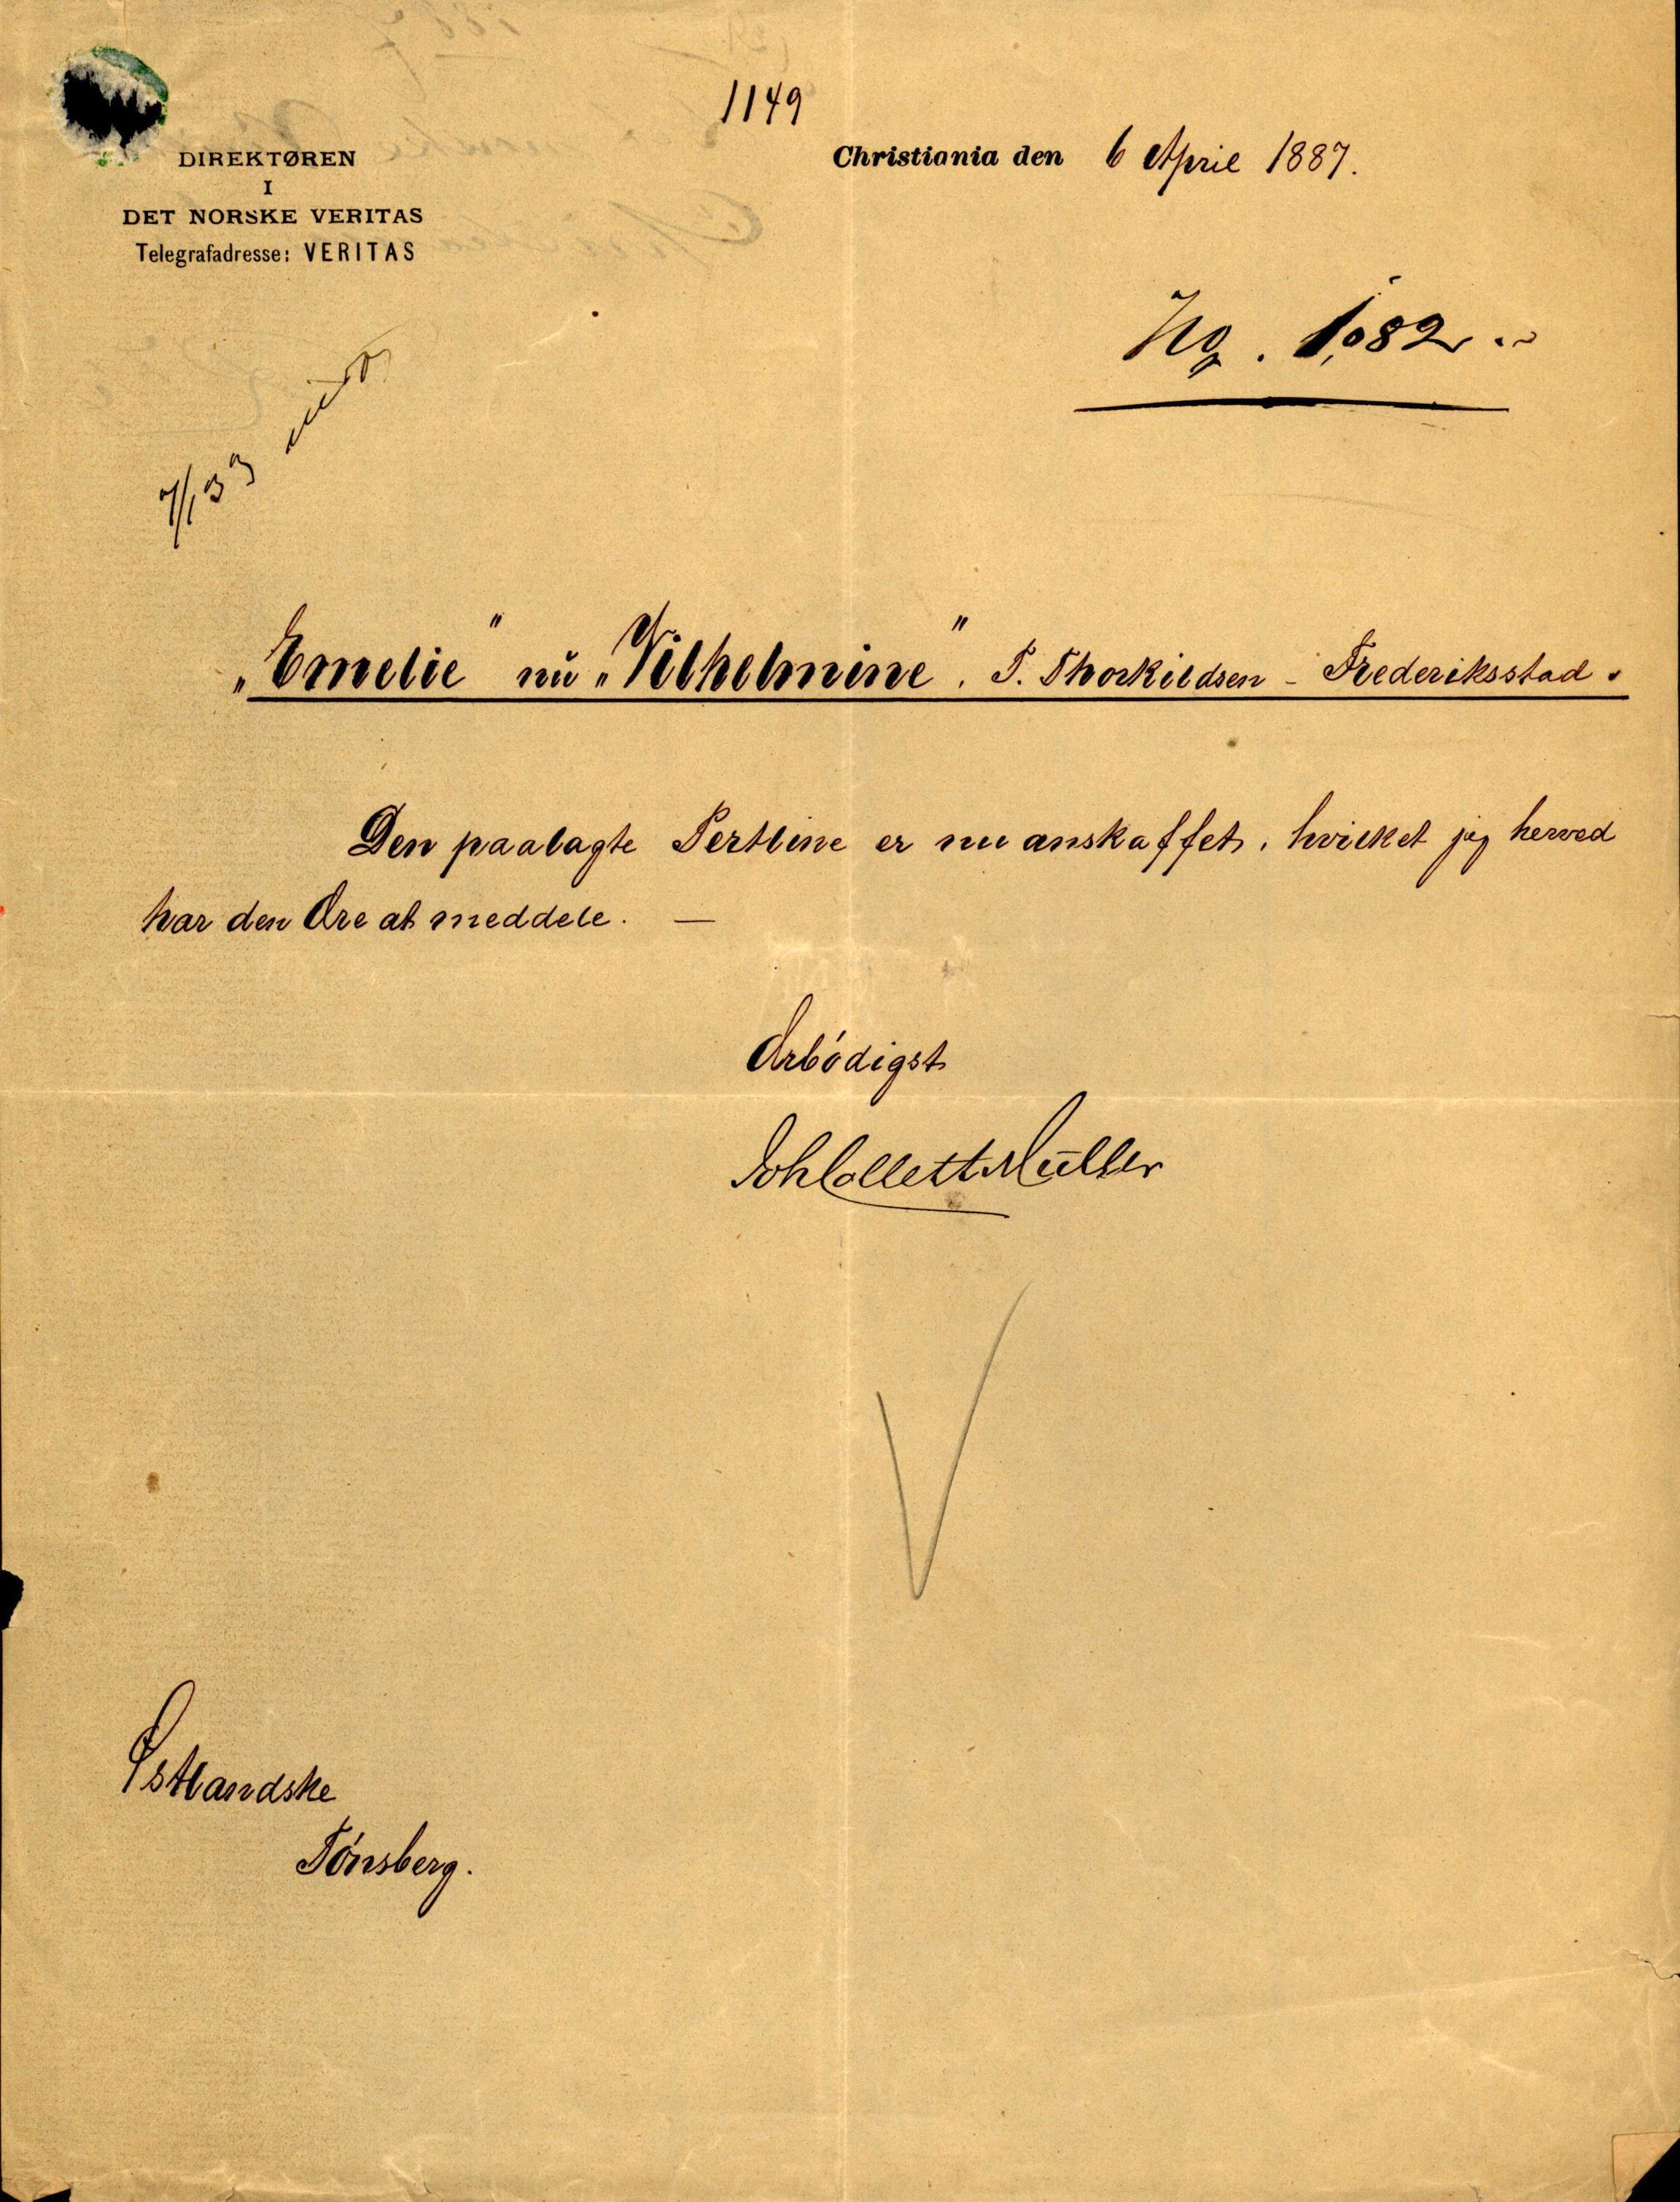 1149
DIREKTØREN
I
DET NORSKE VERITAS
Telegrafadresse: VERITAS
Christiania den 6 April 1887.
1,082
„Emelie" nu „Vilhelmine". T. Thorkildsen - Frederiksstad.
Den paalagte Pertline er nu anskaffet, hvilket jeg herved
har den Ære at meddele. —
Ærbødigst
Joh Collett Müller
Østlandske
Tønsberg.